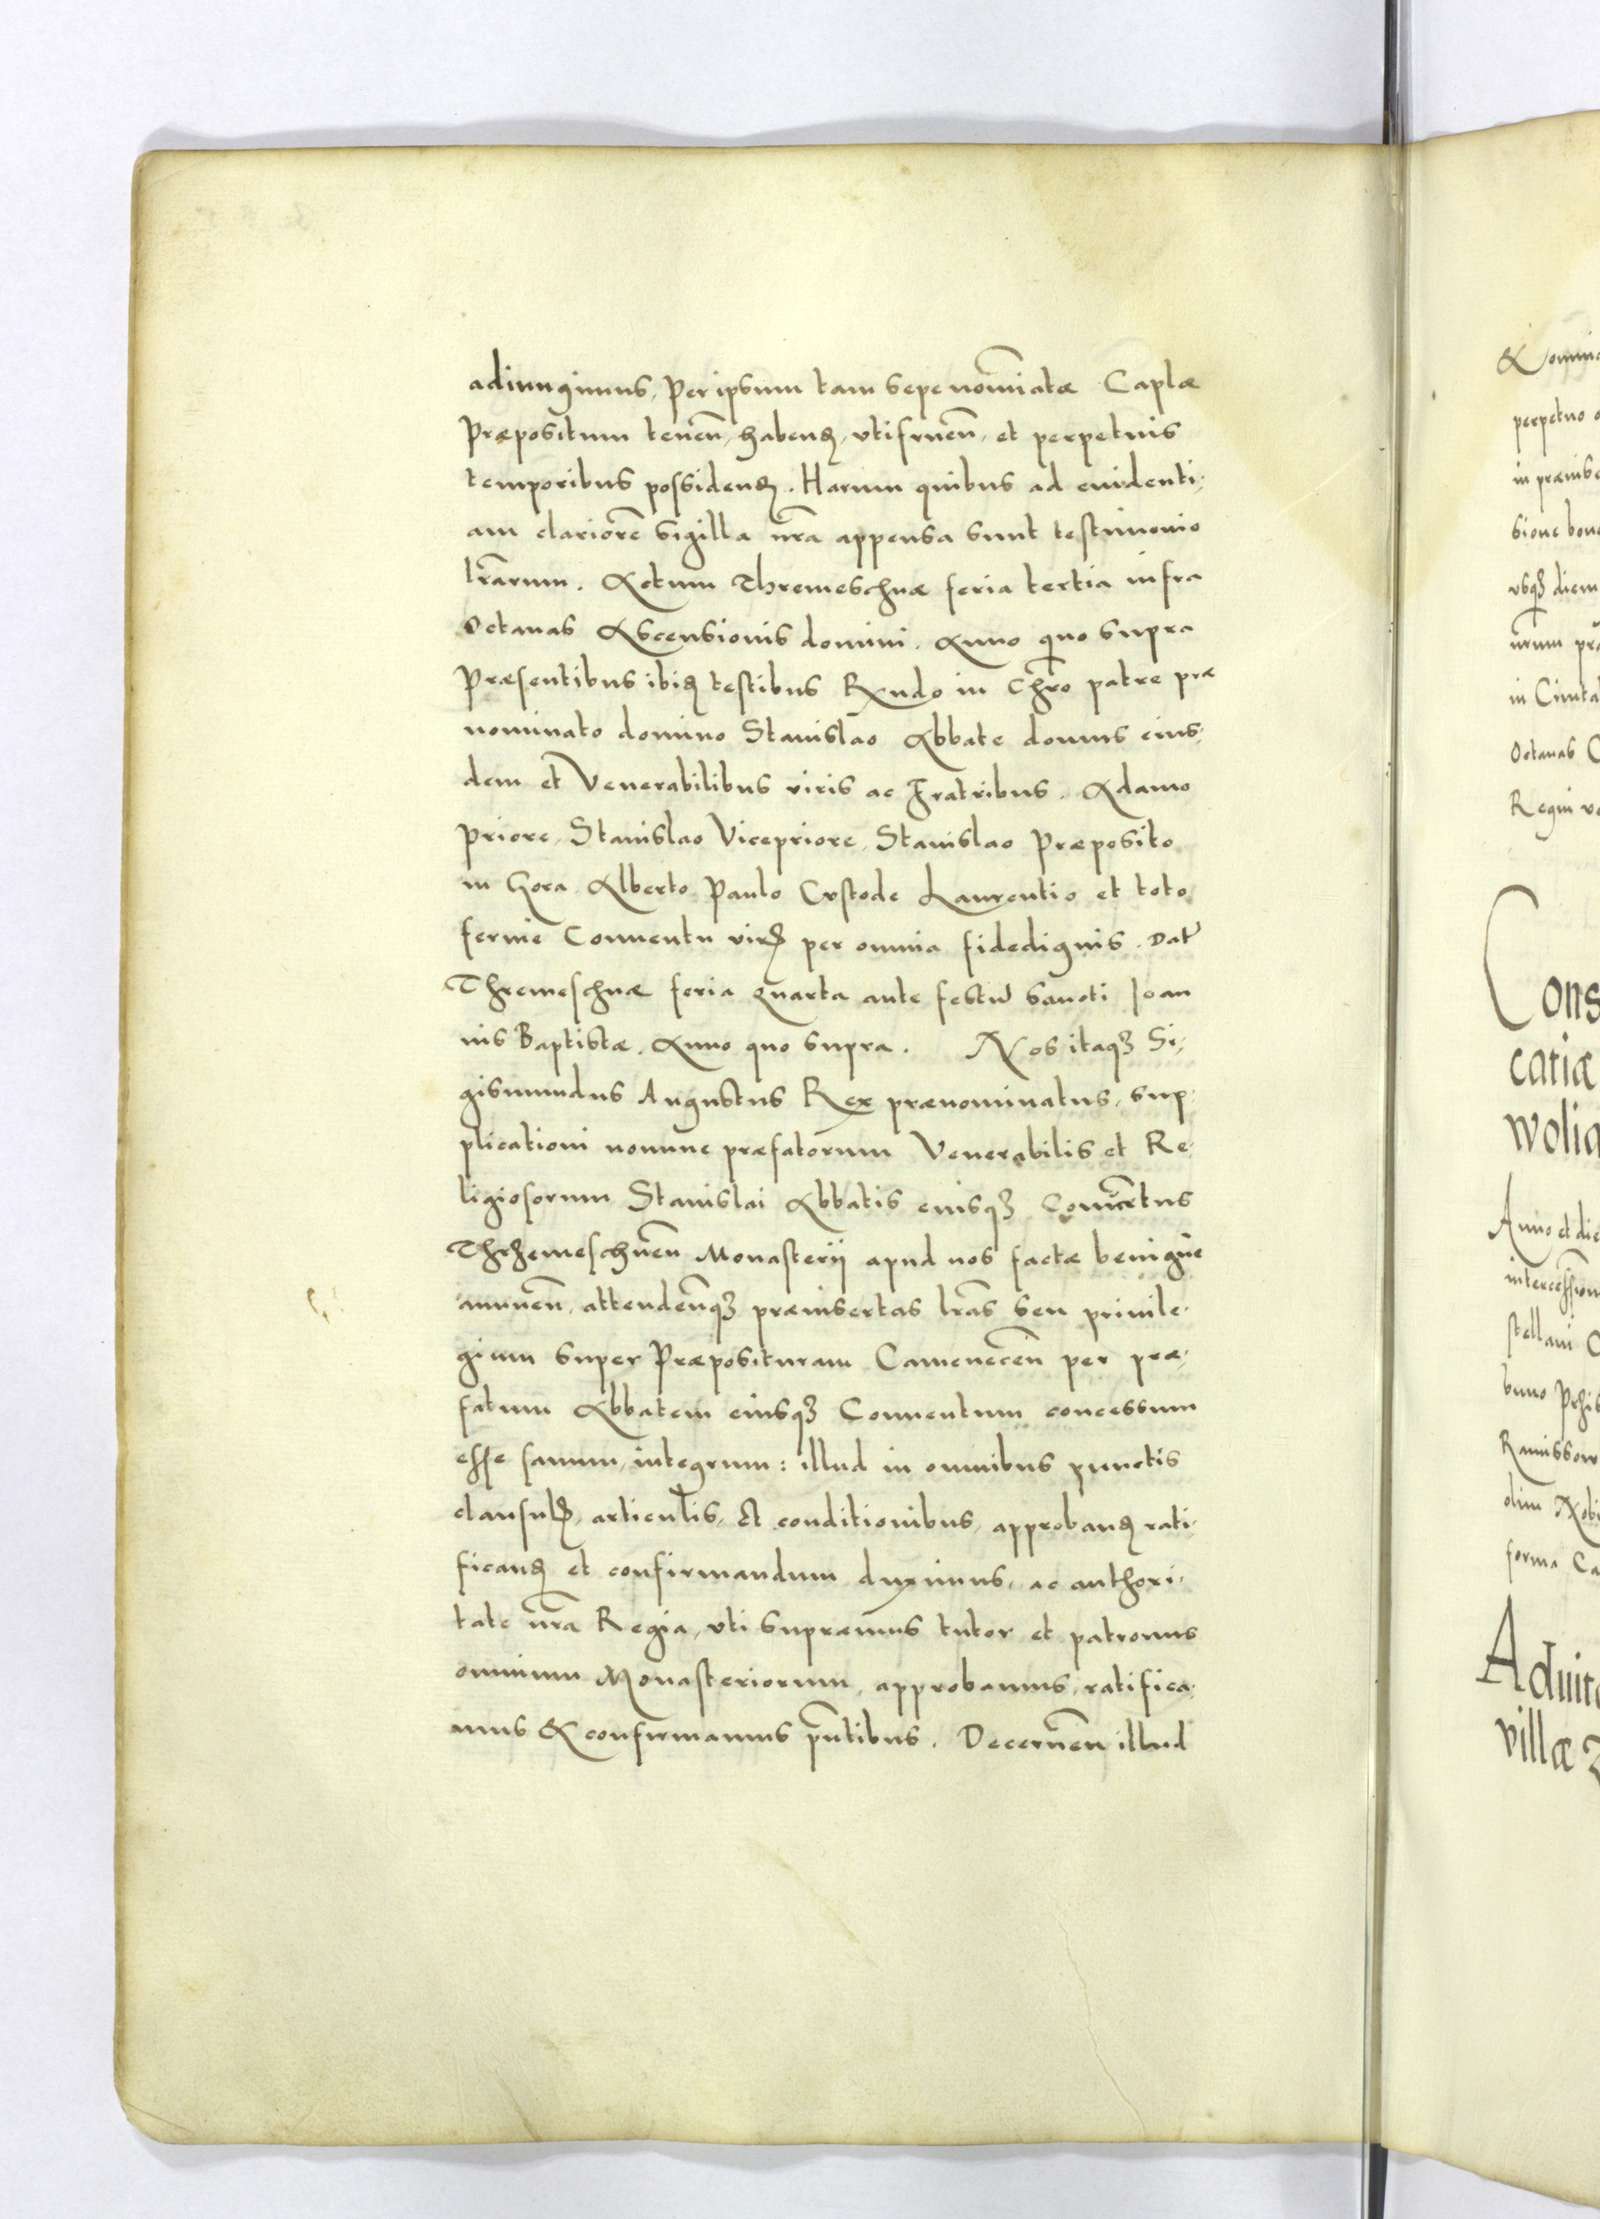 adiungimus, Per ipsum tam sepe nominatæ Caplæ
Præpositum tenen̄, habenꝝ, vtifruen̄, et perpetuis
temporibus possidenꝝ. Harum quibus ad euidenti-
am clariorē sigilla nr̄a appensa sunt testimonio
lr̄arum. Actum Thremeschnæ feria tertia infra
Octauas Ascensionis domini. Anno quo supra
Præsentibus ibiꝝ testibus Rxndo in Chr̄o patre præ
nominato domino Stanislao Abbate domus eius-
dem et Venerabilibus viris ac Fratribus. Adamo
Priore, Stanislao Vicepriore, Stanislao Præposito
in Gora Alberto Paulo Custode Laurentio et toto
ferme Conuentu virꝭ per omnia fidedignis. Dat̄
Thremeschnæ feria quarta ante festū sancti Joan
nis Baptistæ. Anno quo supra. Nos itaqꝫ Si-
gismundus Augustus Rex prænominatus, sup-
plicationi nomine præfatorum Venerabilis et Re-
ligiosorum Stanislai Abbatis eiusqꝫ Conuētus
Thrzemeschnen̄ Monasterij apud nos factæ benigne
annuen̄, attenden̄qꝫ præinsertas lr̄as seu priuile-
gium super Præposituram Camenecen̄ per præ-
fatum Abbatem eiusqꝫ Conuentum concessum
esse sanum, integrum: illud in omnibus punctis
clausulꝭ, articulis, et conditionibus, approbanꝝ rati-
ficanꝝ et confirmandum duximus, ac authori-
tate nr̄a Regia, vti supræmus tutor et patronus
omnium Monasteriorum, approbamus, ratifica-
mus & confirmamus pn̄tibus. Decernen̄ illud
perpetuo
sione
vsqꝫ diem
Octauas
Regni
Cons
catiæ
Anno et die
stellani
olim
forma
villæ